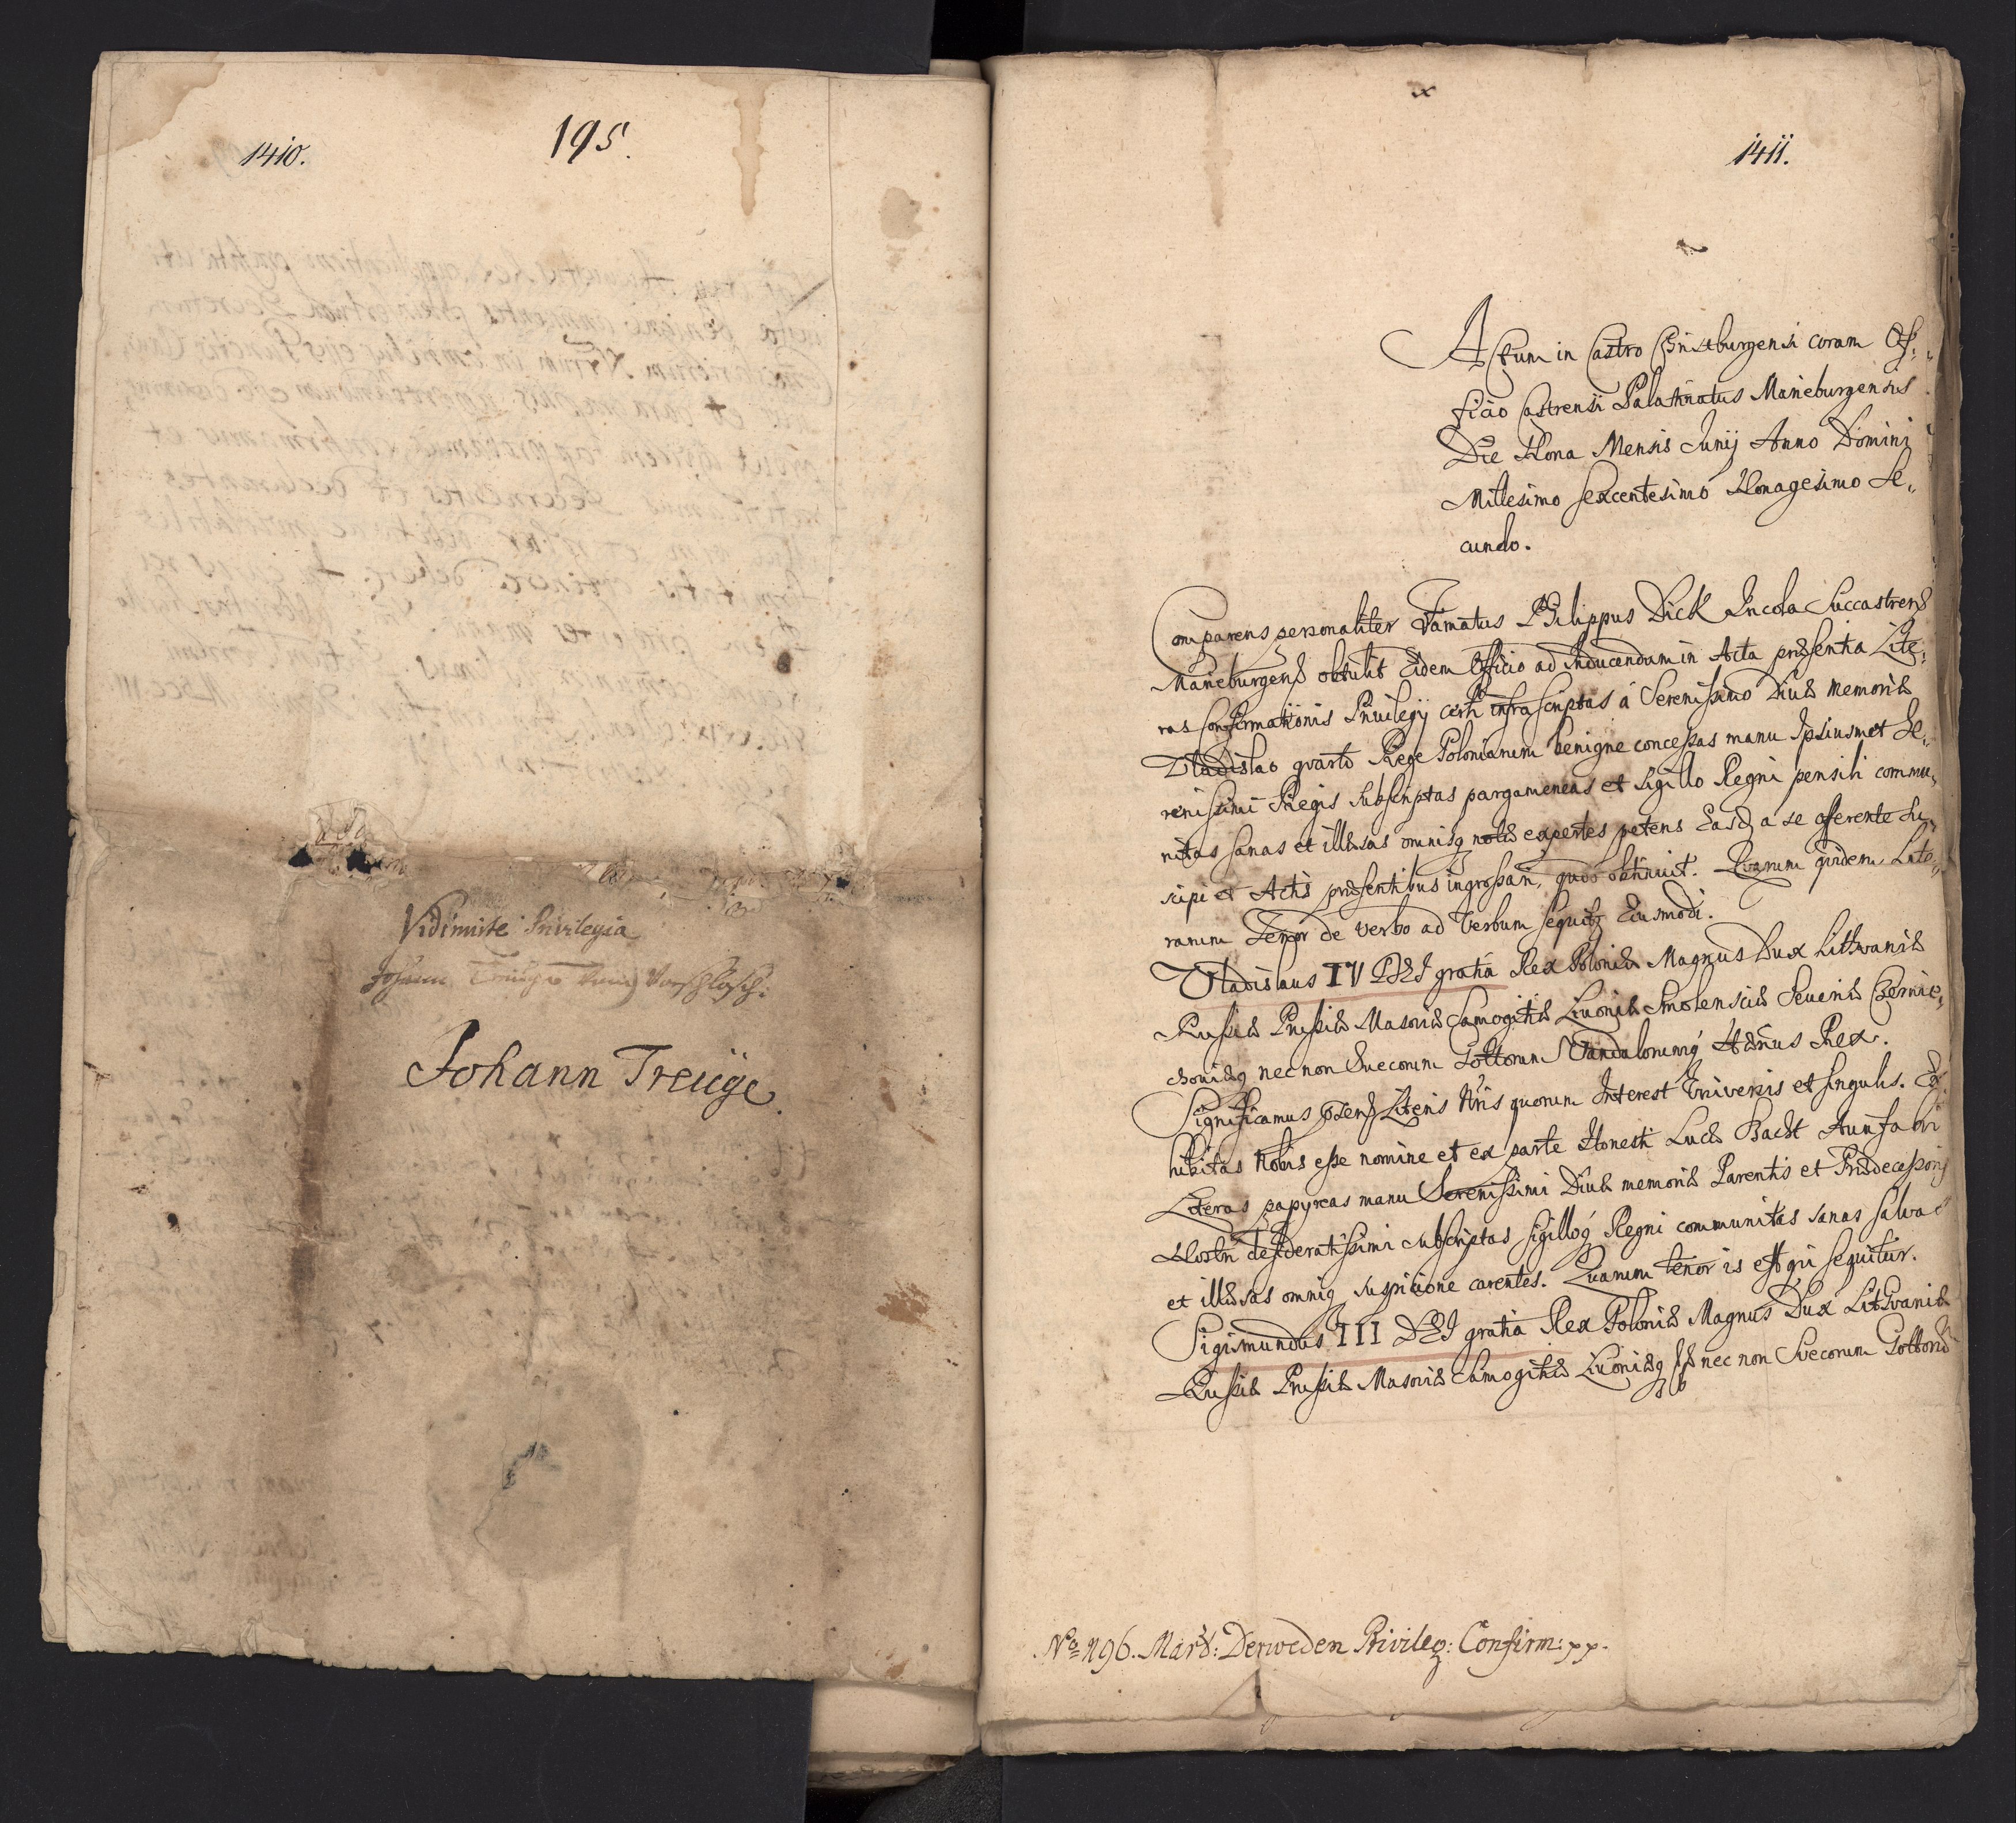 1410.
195.
Vidimirte Privilegia
Johann Treuge Vorschlosch:
Johann Treüge
1411.
Actum in Castro Christburgensi coram Of„
ficio Castrensi Palatinatus Marieburgensis
Die Nona Mensis Junij Anno Domini
Millesimo Sexcentesimo Nonagesimo Se„
cundo.
Comparens personaliter Famatus Philippus Dick Incola Succastrens
Marieburgens obtulit Eidem Officio ad Inducendum in Acta præsentia Lite„
ras Confirmationis Privilegij certi infrascriptas á Serenissimo Divæ memoriæ
Vladislao qvarto Rege Poloniarum benigne concessas manu Ipsiusmet Se„
renissimi Regis subscriptas pargameneas et sigillo Regni pensili commu„
nitas sanas et illæsas omnisq notæ expertes petens Easd a se offerente su„
scipi et Actis præsentibus ingrossari, quod obtinuit. Qvarum qvidem Lite„
rarum Tenor de verbo ad Verbum sequitr Eiusmodi.
Vladislaus IV DEI gratia Rex Poloniæ Magnus Dux Lithvaniæ
Russiæ Prussiæ Masoviæ Samogitiæ Livoniæ Smolensciæ Severiæ Czernie„
choviæq nec non Svecorum Gottorum Vandalorumq Hærüs Rex.
Significamus præns Literis Nris quorum Interest Universis et singulis. Ex„
hibitas Nobis esse nomine et ex parte Honesti Lucæ Bacht Aurifabri
Literas papyreas manu Serenissimi Divæ memoriæ Parentis et Prædecessoris
Nostri desideratissimi subscriptas sigilloq Regni communitas sanas salvas
et illæsas omniq suspicione carentes. Quarum tenor is est qui sequitur.
Sigismundus III DEI gratia Rex Poloniæ Magnus Dux Lithvaniæ
Russiæ Prussiæ Masoviæ Samogitiæ Livoniæq nec non Svecorum Gottorü
No 196. Derweden Privileg: Confirm: pp.